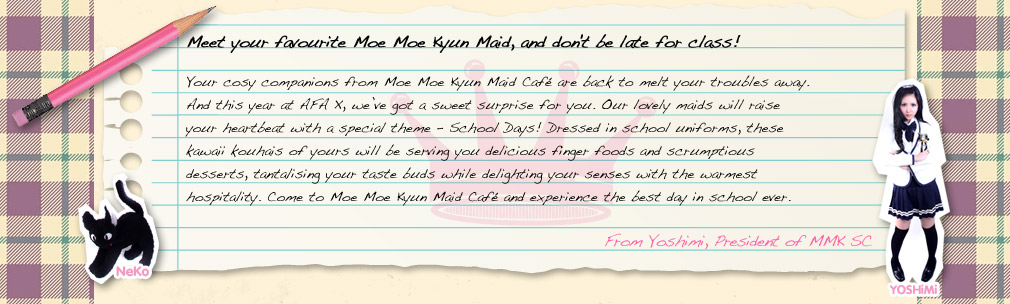 Meet your favourite Moe Moe Kyun Maid, and don't be late for class!
Your cosy companions from Moe Moe Kyun Maid Café are back to melt your troubles away.
And this year at AFA X, we've got a sweet surprise for you. Our lovely maids will raise
your heartbeat with a special theme – School Days! Dressed in school uniforms, these
kawaii kouhais of yours will be serving you delicious finger foods and scrumptious
desserts, tantalising your taste buds while delighting your senses with the warmest
hospitality. Come to Moe Moe Kyun Maid Café and experience the best day in school ever.
From Yoshimi, President of MMK SC
NeKo
YOSHiMi